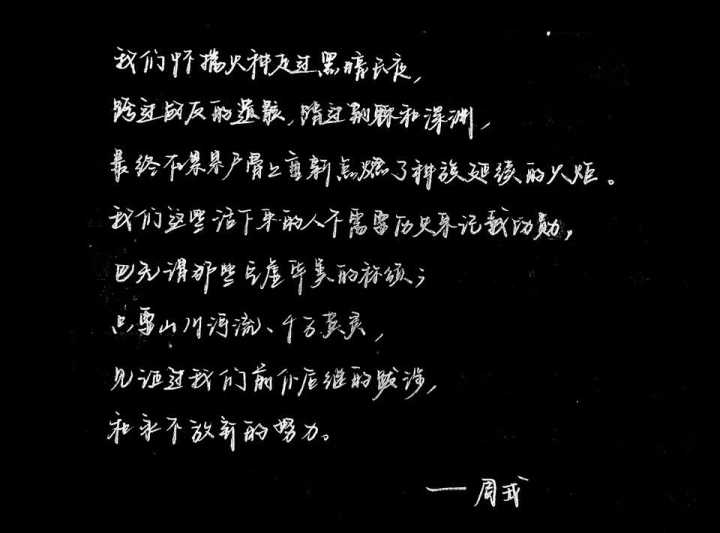 我们怀揣火种友过黑暗长夜，
跨过战友的遗骸，踏过荆棘和深渊，
最终在累累尸骨上重新点燃了种族延续的火炬。
我们这些活下来的人不需要历史来记载功勋，
也无谓那些后虚华美的称颂；
只要山川河流、千万英灵，
见证过我们前仆后继的跋涉，
和永不放弃的努力。
——周戎